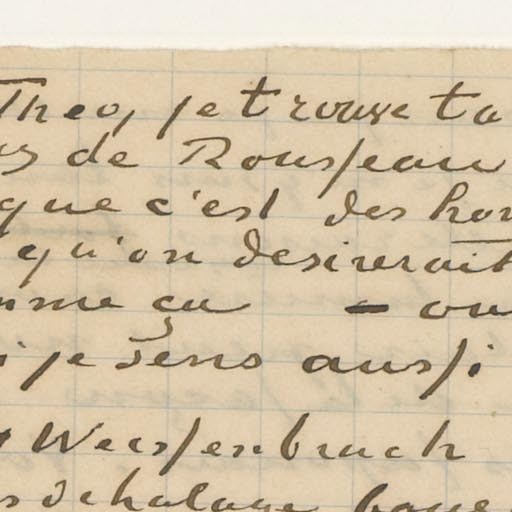 Theo, je trouve ta
de Rousseau
que c'est des hom
qu'on desirerait
mme ça — ou
i je sens aussi
Weissenbruch